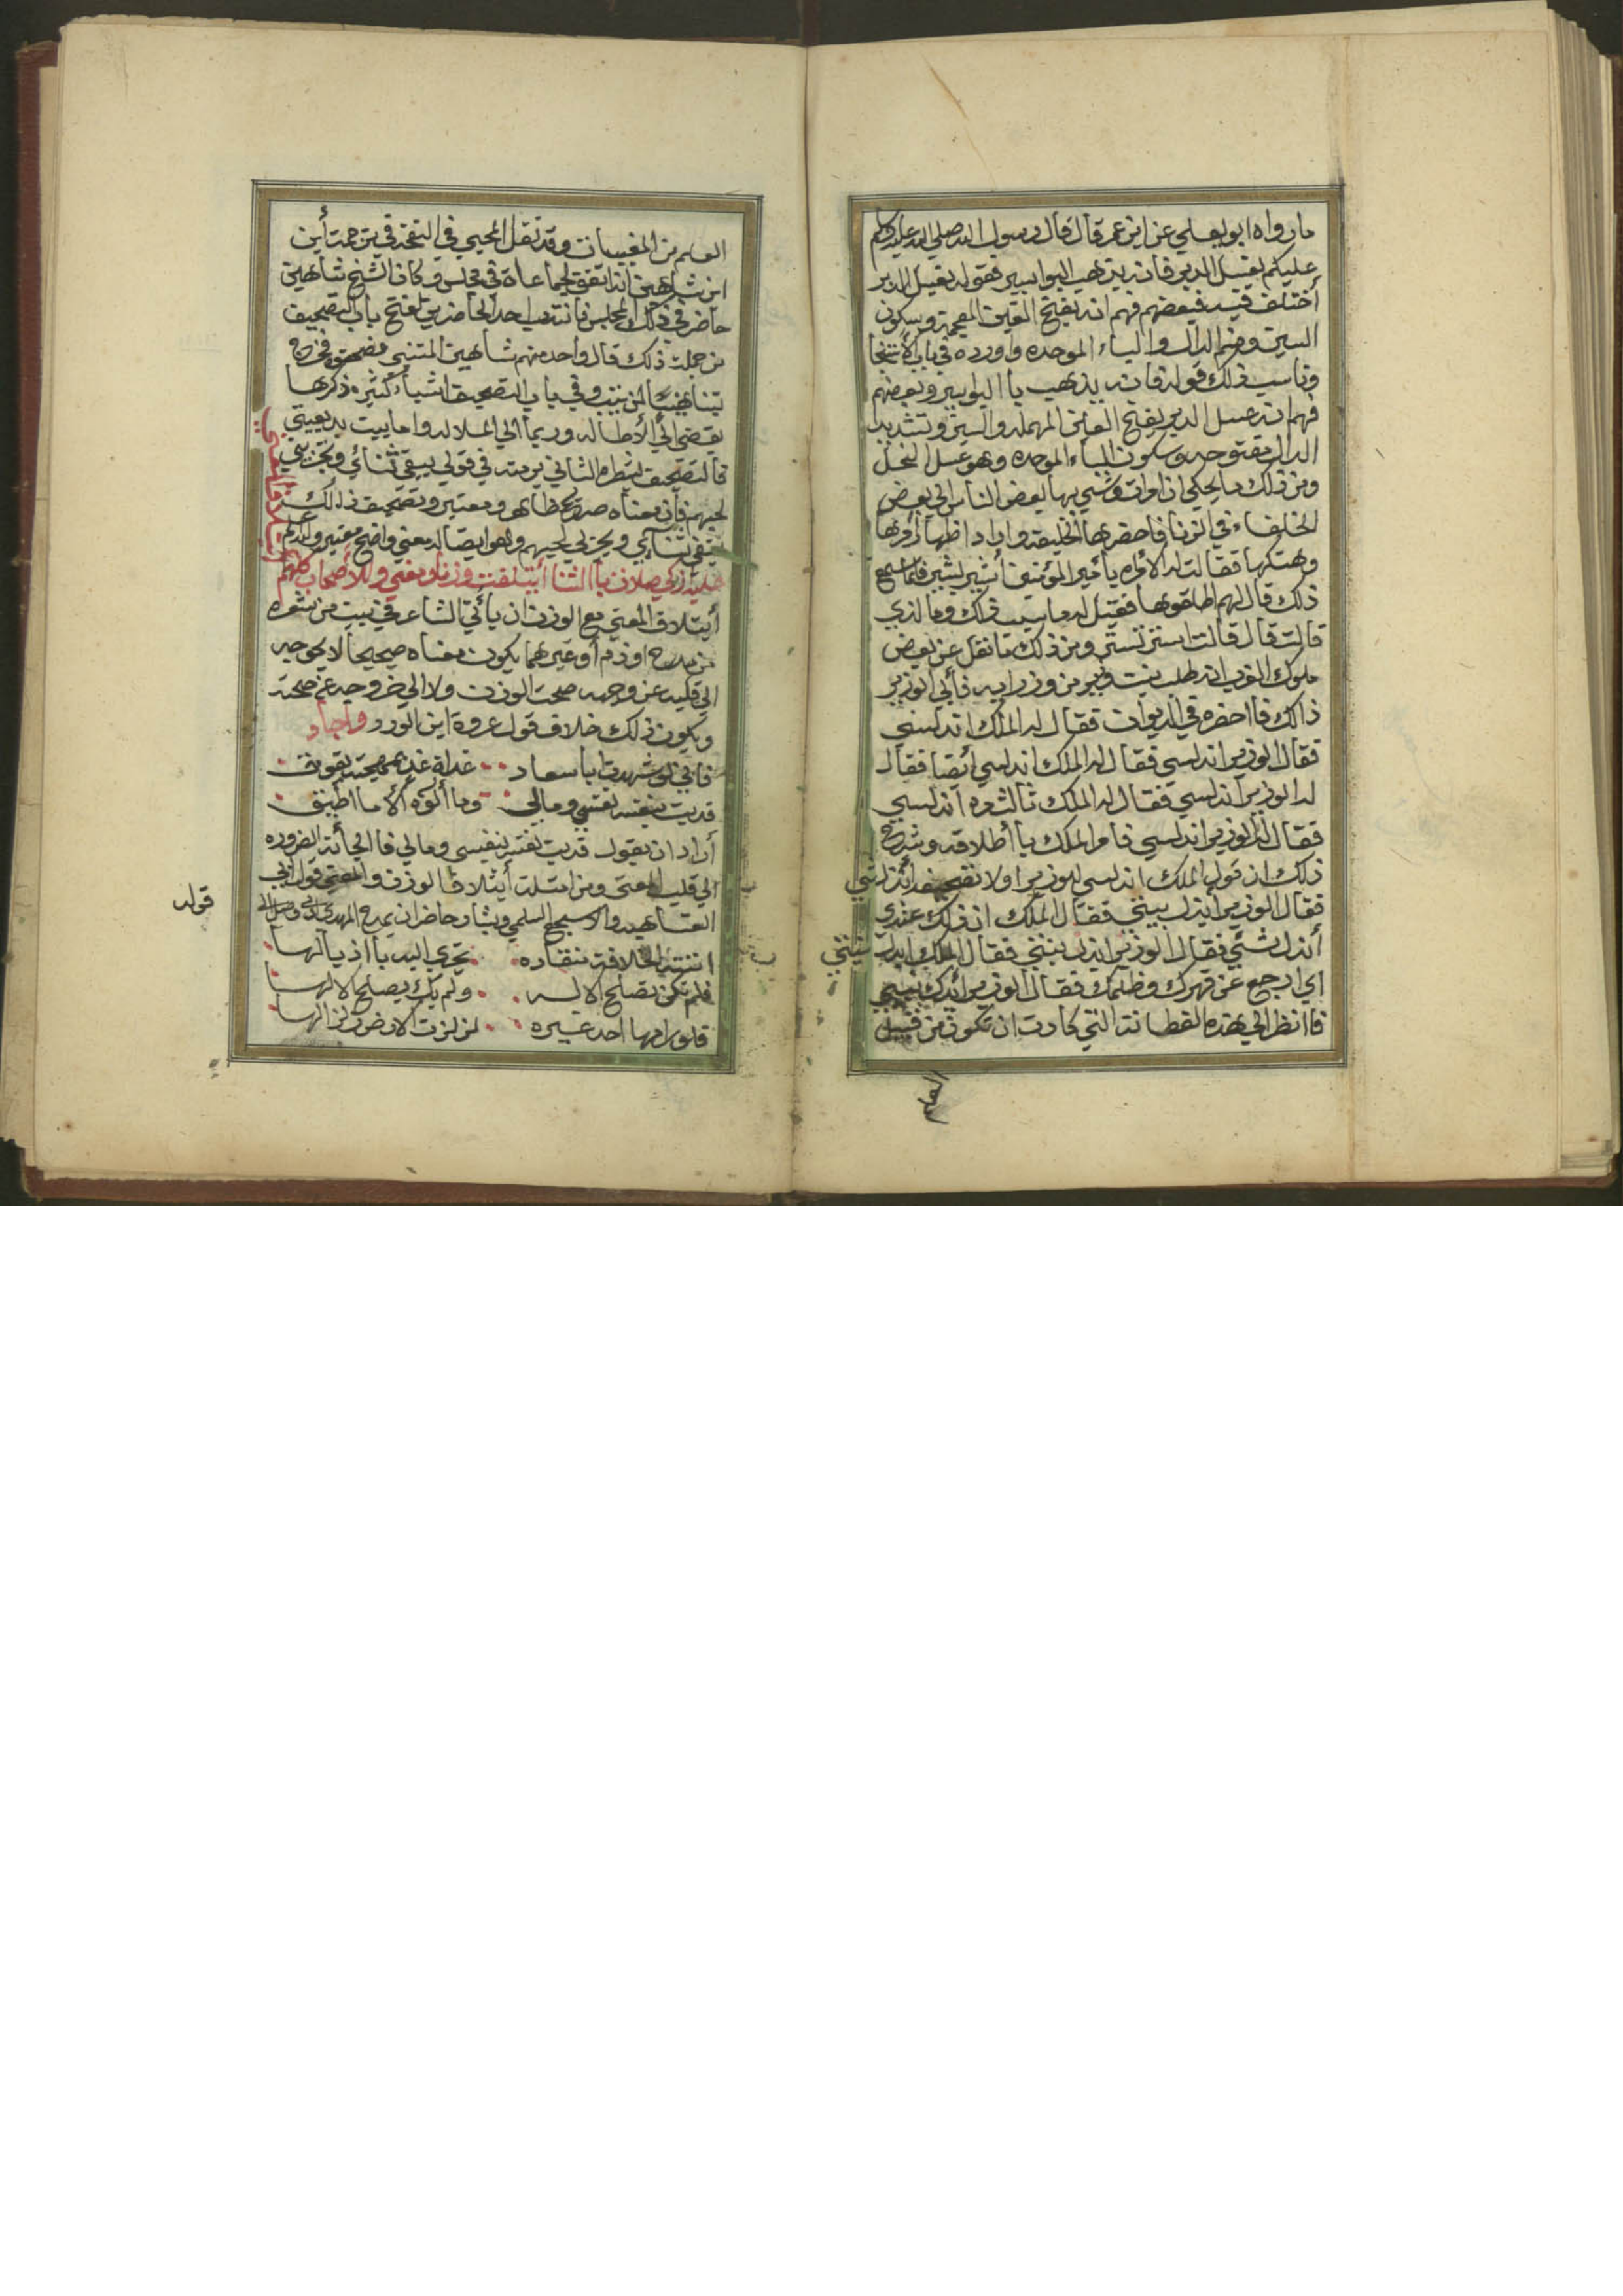 ما رواه ابو يعلي عن ابن عمر قال قال رسول الله صلي الله عليه وسلم
عليكم بغسل الدبر فانه يذهب البواسير فقوله بغسل الدبر
أختلف فيه فبعضهم فهم انه بفتح الغين المعجمة وسكون
السين وضم الدال والباء الموحده واورده في باب الأستنجا
وناسب ذلك قوله فانه يذهب باالبواسير وبعضهم
فهم انه عسل الدبر بفتح العين المهمله والسين وتشديد
الدال مفتوحه وسكون الباء الموحده وهو عسل النحل
ومن ذلك ما يحكي ان اموات وشي بها بعض الناس الي بعض
الخلفاء في الزنا فاحضرها الخليفه واراد اظهار أمرها
وهتكها فقالت له الأمراه يا أمير المؤمنين أنثير لبثير فلما سمع
ذلك قال لهم اطلقوها فقيل له ما سبب ذلك وما الذي
قالت قال قالت استر تستر ومن ذلك ما نقل عن بعض
ملوك الغرب انه طلب بنت وزير من وزرايه فأبي الوزير
ذالك فااحضره في الديوان فقال له الملك اندلسي
فقال الوزير اندلسي فقال له الملك اندلسي أيضا فقال
له الوزير اندلسي فقال له الملك ثالث مره اندلسي
فقال له الوزير اندلسي فامر الملك باأطلاقه وشرح
ذلك ان قول الملك اندلسي للوزير اولا تصحيفه
فقال الوزير أبذل بيتي فقال الملك ان ذلك عندي
أنذل شئي فقال الوزير ابذل بنتي فقال الملك
اي ارجع عن قهرك وظلمك فقال الوزير
فاانظر الي هذه الفطانه التي كادت ان تكون من قبيل
العلم
العلم من المغيبات وقد نقل المحبي في النفحه في ترجمت أبن
ابن شاهين انه اتفق لجماعة في مجلس وكان الشيخ شاهين
حاضر في ذلك المجلس فانتدب احد الحاضرين لفتح باب التصحيف
من جملت ذلك قال واحد منهم شاهين المتنبي
وفي باب التصحيف اشياء كثيره ذكرها
يفضي الي الأطاله وربما الي الملاله واما بيت بديعيتي
فالتصحيف بشطره الثاني يرمته في قولي يبقي ثنائي
لحبهم فأن معناه صحيح ظاهر ومعتبر وتصحيف ذالك
وهو ايضا له معني واضح معتبر والله اعلم
أيتلاف المعني
صلاة باالثنا أيتلفت وزنا ومعني وللأصحاب كلهم
أيتلاف المعني مع الوزن ان يأتي الشاعر في بيت من شعره
من مدح او ذم أو غيرهما يكون معناه صحيحا لا يحوجه
الي قلبه عن وجهه صحت الوزن ولا الي خروجه عن صحته
ويكون ذلك خلاف قول عروة ابن الورد
فاني لو شهدت ابا سعاد غداة غد بمهجته يفوق
فديت بنفسه نفسي ومالي وما ألوه ألا ما اطيق
أراد ان يقول فديت نفسه بنفسي ومالي فاالجأته الضروره
الي قلب المعني ومن امثلت أيتلاف الوزن والمعني قول ابي
العتاهيه واسجع السلمي وبشار حاضر ان يمدح المهدي
اتته الخلافة منقاده تجري اليه باأذيالها
فلم تكن تصلح الا له ولم يك يصلح الا لها
فلو رامها احد غيره لزلزت الارض زلزالها
قوله